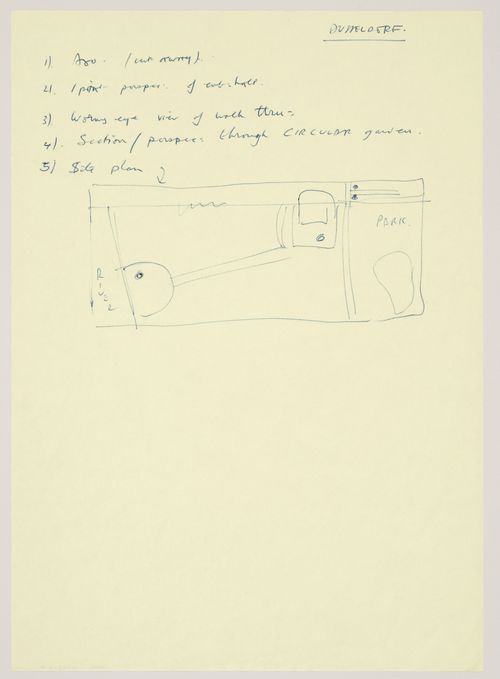 DUSSELDORF.
1). Axo. (cut away).
2). 1 point perspec. of ent. hall.
3) Worms eye view of walk thru-
4). Section / perspec: through CIRCULAR garden.
5) Site plan
PARK.
RIVER